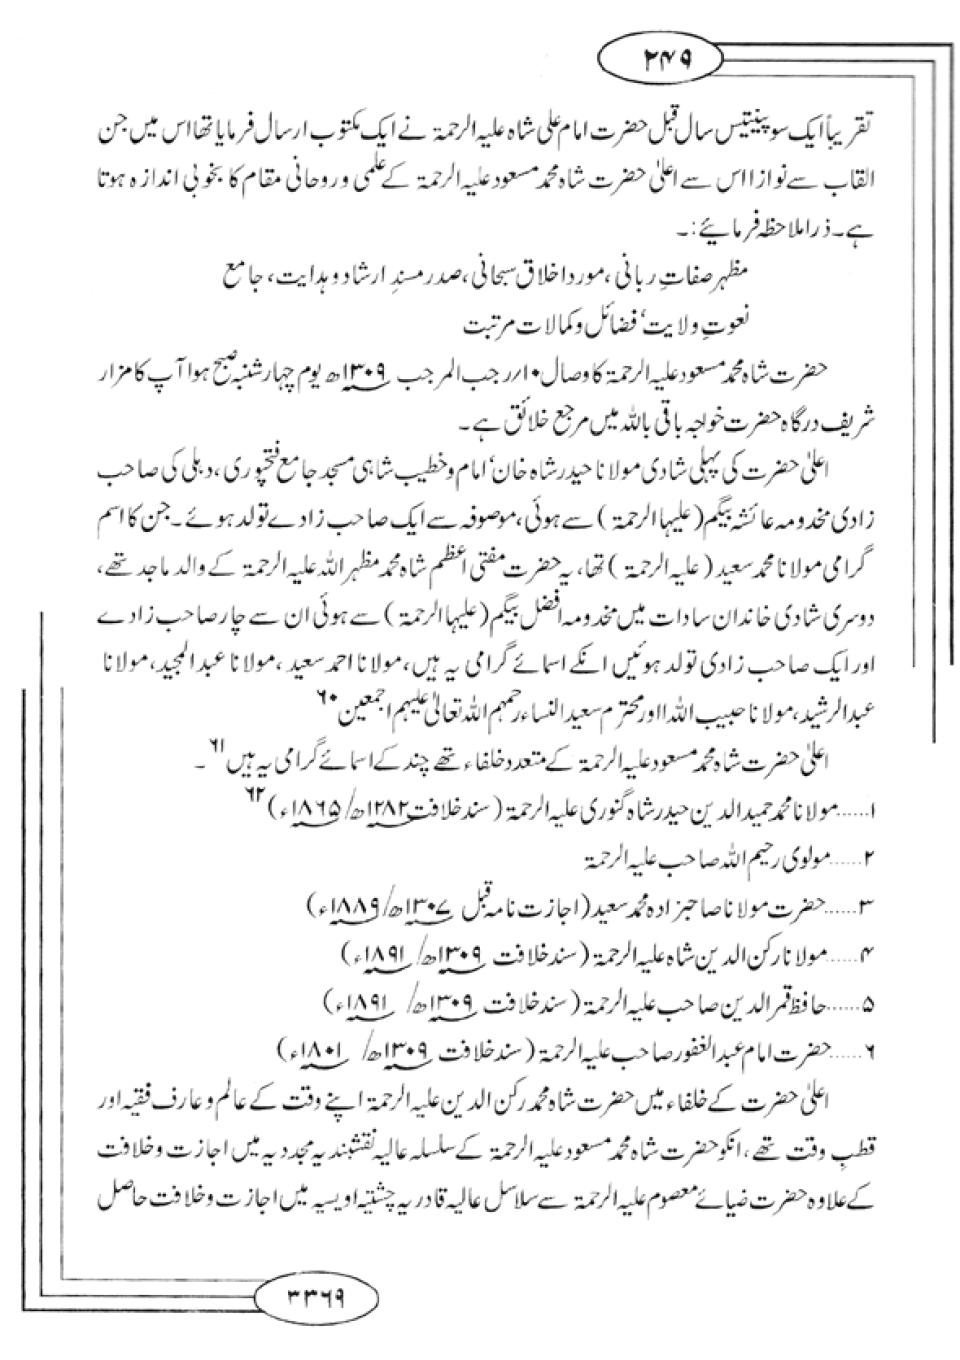 ۲۴۹
تقریباً ایک سو پینتیس سال قبل حضرت امام علی شاہ علیہ الرحمۃ نے ایک مکتوب ارسال فرمایا تھا اس میں جن
القاب سے نوازا اس سے اعلیٰ حضرت شاہ محمد مسعود علیہ الرحمۃ کے علمی و روحانی مقام کا بخوبی اندازہ ہوتا
ہے۔ ذرا ملاحظہ فرمائیے:۔
مظہر صفاتِ ربانی، مورد اخلاق سبحانی، صدر مسندِ ارشاد و ہدایت، جامع
نعوتِ ولایت، فضائل و کمالات مرتبت
حضرت شاہ محمد مسعود علیہ الرحمۃ کا وصال ۱۰/رجب المرجب ۱۳۰۹ھ یوم چہار شنبہ صبح ہوا آپ کا مزار
شریف درگاہ حضرت خواجہ باقی باللہ میں مرجع خلائق ہے۔
اعلیٰ حضرت کی پہلی شادی مولانا حیدر شاہ خان، امام و خطیب شاہی مسجد جامع فتحپوری، دہلی کی صاحب
زادی مخدومہ عائشہ بیگم (علیہا الرحمۃ) سے ہوئی، موصوفہ سے ایک صاحب زادے تولد ہوئے۔ جن کا اسم
گرامی مولانا محمد سعید (علیہ الرحمۃ) تھا، یہ حضرت مفتی اعظم شاہ محمد مظہر اللہ علیہ الرحمۃ کے والد ماجد تھے،
دوسری شادی خاندان سادات میں مخدومہ افضل بیگم (علیہا الرحمۃ) سے ہوئی ان سے چار صاحب زادے
اور ایک صاحب زادی تولد ہوئیں انکے اسمائے گرامی یہ ہیں، مولانا احمد سعید، مولانا عبدالمجید، مولانا
عبدالرشید، مولانا حبیب اللہ اور محترم سعید النساء رحمہم اللہ تعالیٰ علیہم اجمعین ۶۰
اعلیٰ حضرت شاہ محمد مسعود علیہ الرحمۃ کے متعدد خلفاء تھے چند کے اسمائے گرامی یہ ہیں ۶۱۔
۱......مولانا محمد حمید الدین حیدر شاہ گنوری علیہ الرحمۃ (سند خلافت ۱۲۸۲ھ/۱۸۶۵ء) ۶۲
۲......مولوی رحیم اللہ صاحب علیہ الرحمۃ
۳......حضرت مولانا صاحبزادہ محمد سعید (اجازت نامہ قبل ۱۳۰۷ھ/۱۸۸۹ء)
۴......مولانا رکن الدین شاہ علیہ الرحمۃ (سند خلافت ۱۳۰۹ھ/۱۸۹۱ء)
۵......حافظ قمر الدین صاحب علیہ الرحمۃ (سند خلافت ۱۳۰۹ھ/۱۸۹۱ء)
۶......حضرت امام عبدالغفور صاحب علیہ الرحمۃ (سند خلافت ۱۳۰۹ھ/۱۸۰۱ء)
اعلیٰ حضرت کے خلفاء میں حضرت شاہ محمد رکن الدین علیہ الرحمۃ اپنے وقت کے عالم و عارف فقیہ اور
قطب وقت تھے، انکو حضرت شاہ محمد مسعود علیہ الرحمۃ کے سلسلہ عالیہ نقشبندیہ مجددیہ میں اجازت و خلافت
کے علاوہ حضرت ضیائے معصوم علیہ الرحمۃ سے سلاسل عالیہ قادریہ چشتیہ اویسیہ میں اجازت و خلافت حاصل
۳۳۶۹